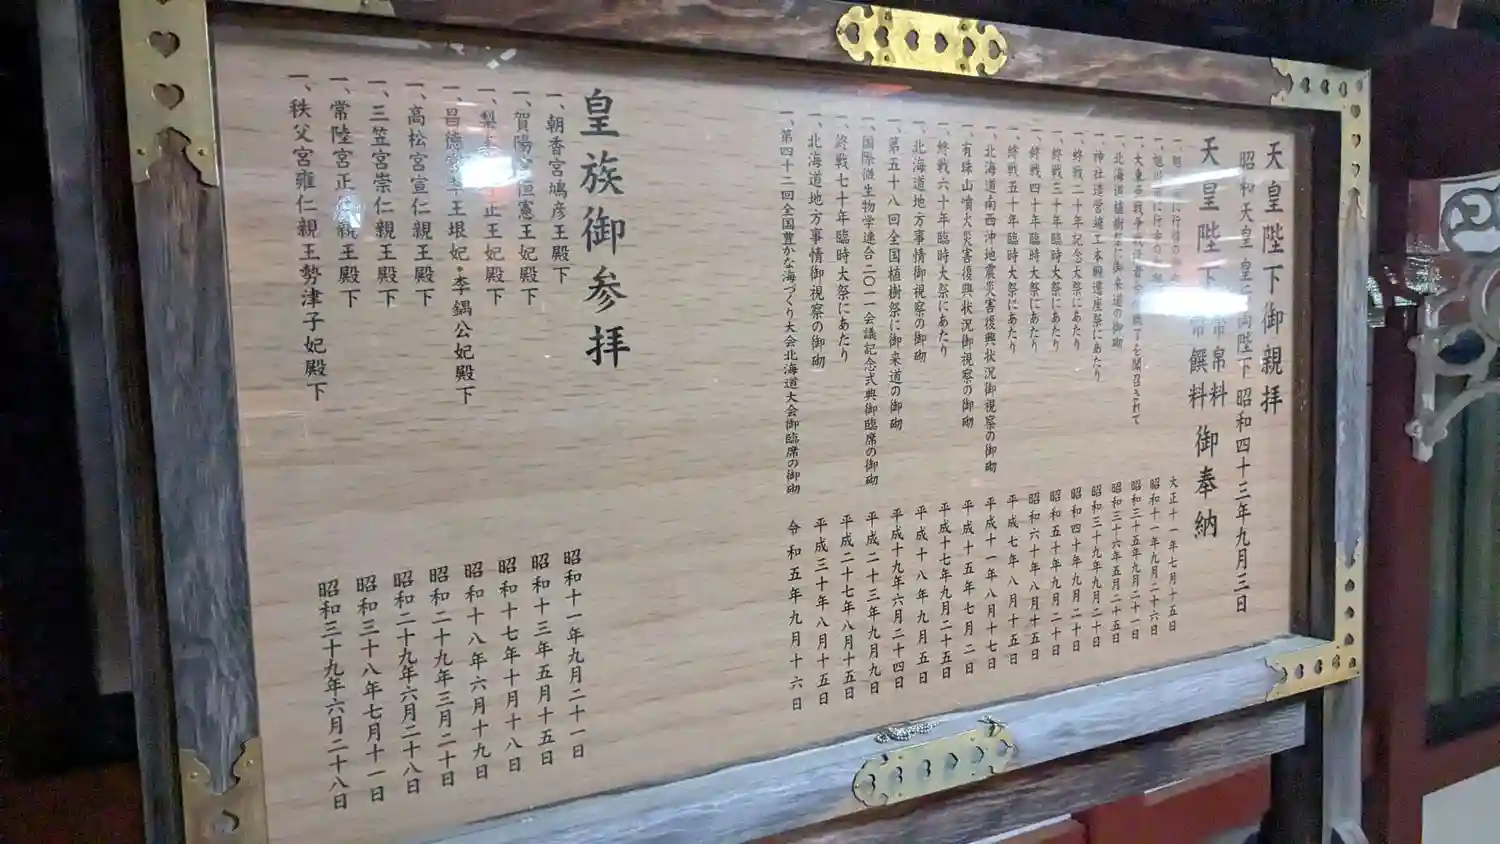 天皇陛下御親拝
昭和天皇 皇 両陛下 昭和四十三年九月三日
天皇陛下 幣帛料 饌料 御奉納
一、旭 に行 の 大正十一年七月十五日
一、旭川 に行幸の 昭和十一年九月二十六日
一、大東亜戦争 を関召されて 昭和三十五年九月二十一日
一、北海道植樹祭に御来道の御砌 昭和三十六年五月二十五日
一、神社造営竣工本殿遷座祭にあたり 昭和三十九年九月二十日
一、終戦二十年記念大祭にあたり 昭和四十年九月二十日
一、終戦三十年臨時大祭にあたり 昭和五十年九月二十日
一、終戦四十年臨時大祭にあたり 昭和六十年八月十五日
一、終戦五十年臨時大祭にあたり 平成七年八月十五日
一、北海道南西沖地震災害復興状況御視察の御砌 平成十一年八月十七日
一、有珠山噴火災害復興状況御視察の御砌 平成十五年七月二日
一、終戦六十年臨時大祭にあたり 平成十七年九月二十五日
一、北海道地方事情御視察の御砌 平成十八年九月五日
一、第五十八回全国植樹祭に御来道の御砌 平成十九年六月二十四日
一、国際微生物学連合二〇一一会議記念式典御臨席の御砌 平成二十三年九月九日
一、終戦七十年臨時大祭にあたり 平成二十七年八月十五日
一、北海道地方事情御視察の御砌 平成三十年八月十五日
一、第四十二回全国豊かな海づくり大会北海道大会御臨席の御砌 令和五年九月十六日
皇族御参拝
一、朝香宮鳩彦王殿下 昭和十一年九月二十一日
一、賀陽宮恒憲王妃殿下 昭和十三年五月十五日
一、梨 正王妃殿下 昭和十七年十月十八日
一、昌徳宮李王垠妃・李鍝公妃殿下 昭和十八年六月十九日
一、高松宮宣仁親王殿下 昭和二十九年三月二十日
一、三笠宮崇仁親王殿下 昭和二十九年六月二十八日
一、常陸宮正仁親王殿下 昭和三十八年七月十一日
一、秩父宮雍仁親王勢津子妃殿下 昭和三十九年六月二十八日